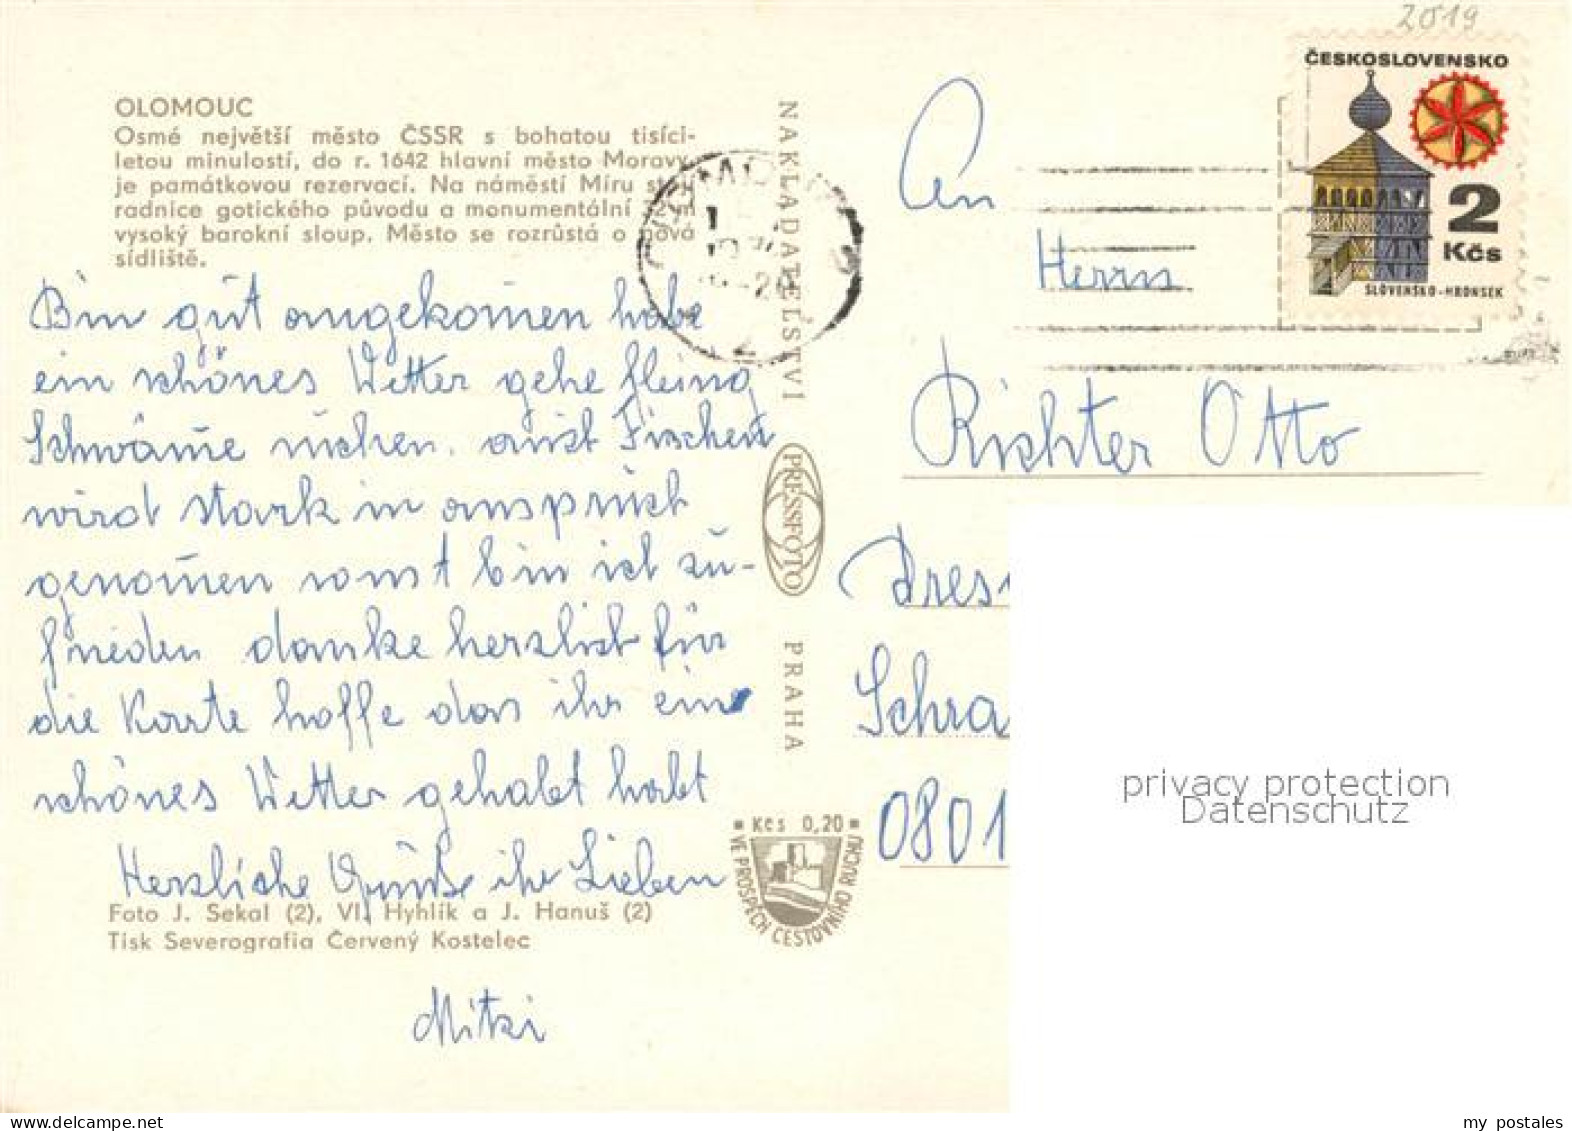 2019
OLOMOUC
Osmé největší město ČSSR s bohatou tisíci-
letou minulostí, do r. 1642 hlavní město Moravy,
je památkovou rezervací. Na náměstí Míru stojí
radnice gotického původu a monumentální
vysoký barokní sloup. Město se rozrůstá o nová
sídliště.
Bin gut angekom̄en habe
ein schönes Wetter gehe fleisig
Schwäm̄e suchen. auch Fischen
wird stark in anspruch
genom̄en sonst bin ich zu-
frieden danke herzlich für
die Karte hoffe das ihr ein
schönes Wetter gehabt habt
Herzliche Grüße ihr Lieben
Foto J. Sekal (2), Vl. Hyhlík a J. Hanuš (2)
Tisk Severografia Červený Kostelec
Mitzi
NAKLADATELSTVÍ
PRESSFOTO
PRAHA
Kčs 0,20
VE PROSPĚCH CESTOVNÍHO RUCHU
OLOMOUC
ČESKOSLOVENSKO
2
Kčs
SLOVENSKO-HRONSEK
An
Herrn
Richter Otto
Dres
Schra
0801
privacy protection
Datenschutz
my postales